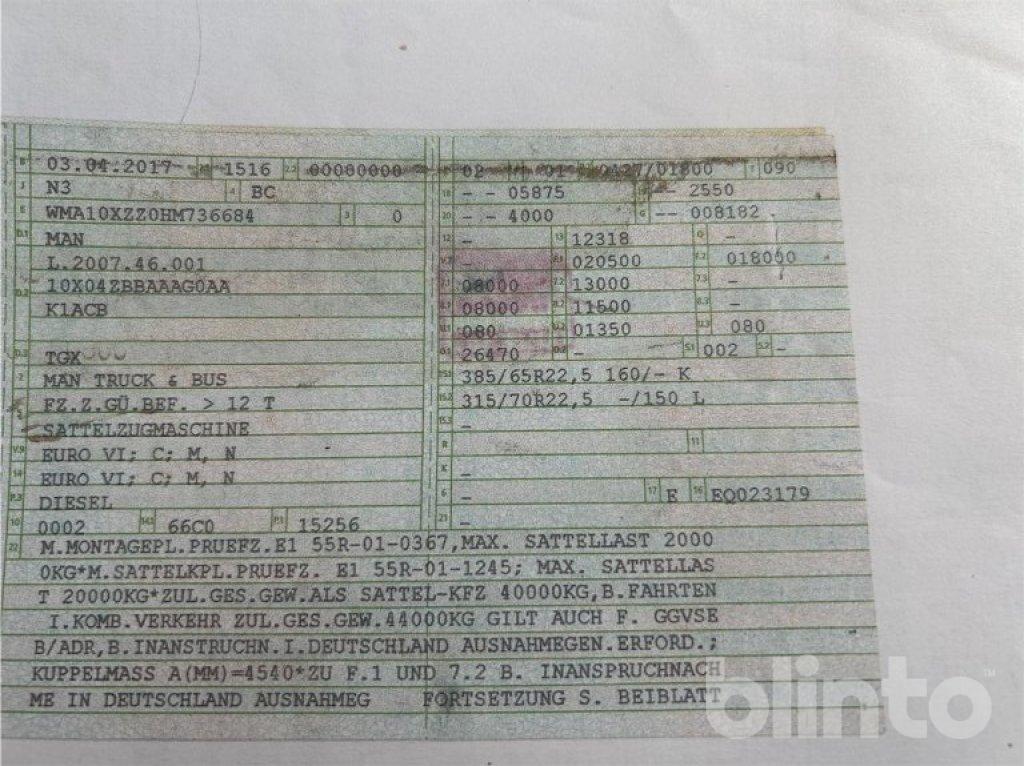 B 03.04.2017 1516 2.2 00080000
J N3 4 BC
E WMA10XZZ0HM736684 3 0
D.1 MAN
L.2007.46.001
D.2 10X04ZBBAAAG0AA
K1ACB
D.3 TGX
2 MAN TRUCK & BUS
5 FZ.Z.GÜ.BEF. > 12 T
SATTELZUGMASCHINE
V.9 EURO VI; C; M, N
14 EURO VI; C; M, N
P.3 DIESEL
10 0002 14.1 66C0 P.1 15256
02 01 0427/01800 T 090
18 - - 05875 - 2550
20 - - 4000 G -- 008182
12 - 13 12318 Q -
V.7 - F.1 020500 F.2 018000
7.1 08000 7.2 13000 7.3 -
8.1 08000 8.2 11500 8.3 -
U.1 080 U.2 01350 U.3 080
O.1 26470 O.2 - S.1 002 S.2 -
15.1 385/65R22,5 160/- K
15.2 315/70R22,5 -/150 L
15.3 -
R 11
K -
6 - 17 E 16 EQ023179
21 -
22 M.MONTAGEPL.PRUEFZ.E1 55R-01-0367,MAX. SATTELLAST 2000
0KG*M.SATTELKPL.PRUEFZ. E1 55R-01-1245; MAX. SATTELLAS
T 20000KG*ZUL.GES.GEW.ALS SATTEL-KFZ 40000KG,B.FAHRTEN
I.KOMB.VERKEHR ZUL.GES.GEW.44000KG GILT AUCH F. GGVSE
B/ADR,B.INANSTRUCHN.I.DEUTSCHLAND AUSNAHMEGEN.ERFORD.;
KUPPELMASS A(MM)=4540*ZU F.1 UND 7.2 B. INANSPRUCHNAH
ME IN DEUTSCHLAND AUSNAHMEG FORTSETZUNG S. BEIBLATT
olinto™